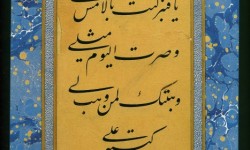 یا قنبر کنت بالامس لی
و صرت الیوم مثلی
وهبتک لمن وهبک لی
کتبه علی